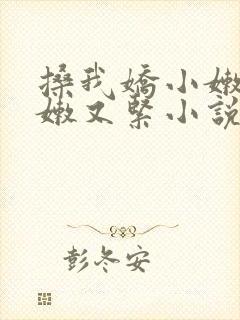 搡我嬌小嫩
嫩又緊小說
彭冬安